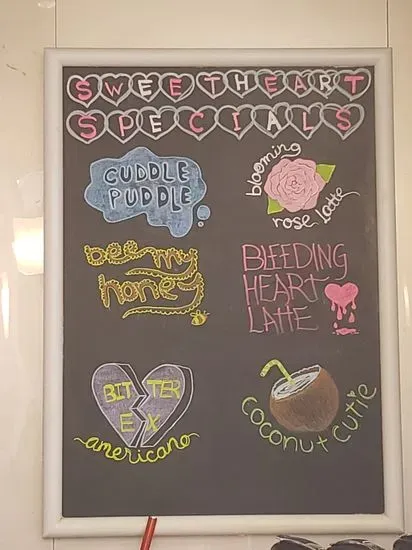 SWEETHEART
SPECIALS
CUDDLE
PUDDLE
blooming
rose latte
bee my
honey
BLEEDING
HEART
LATTE
BITTER
EX
americano
coconut cutie